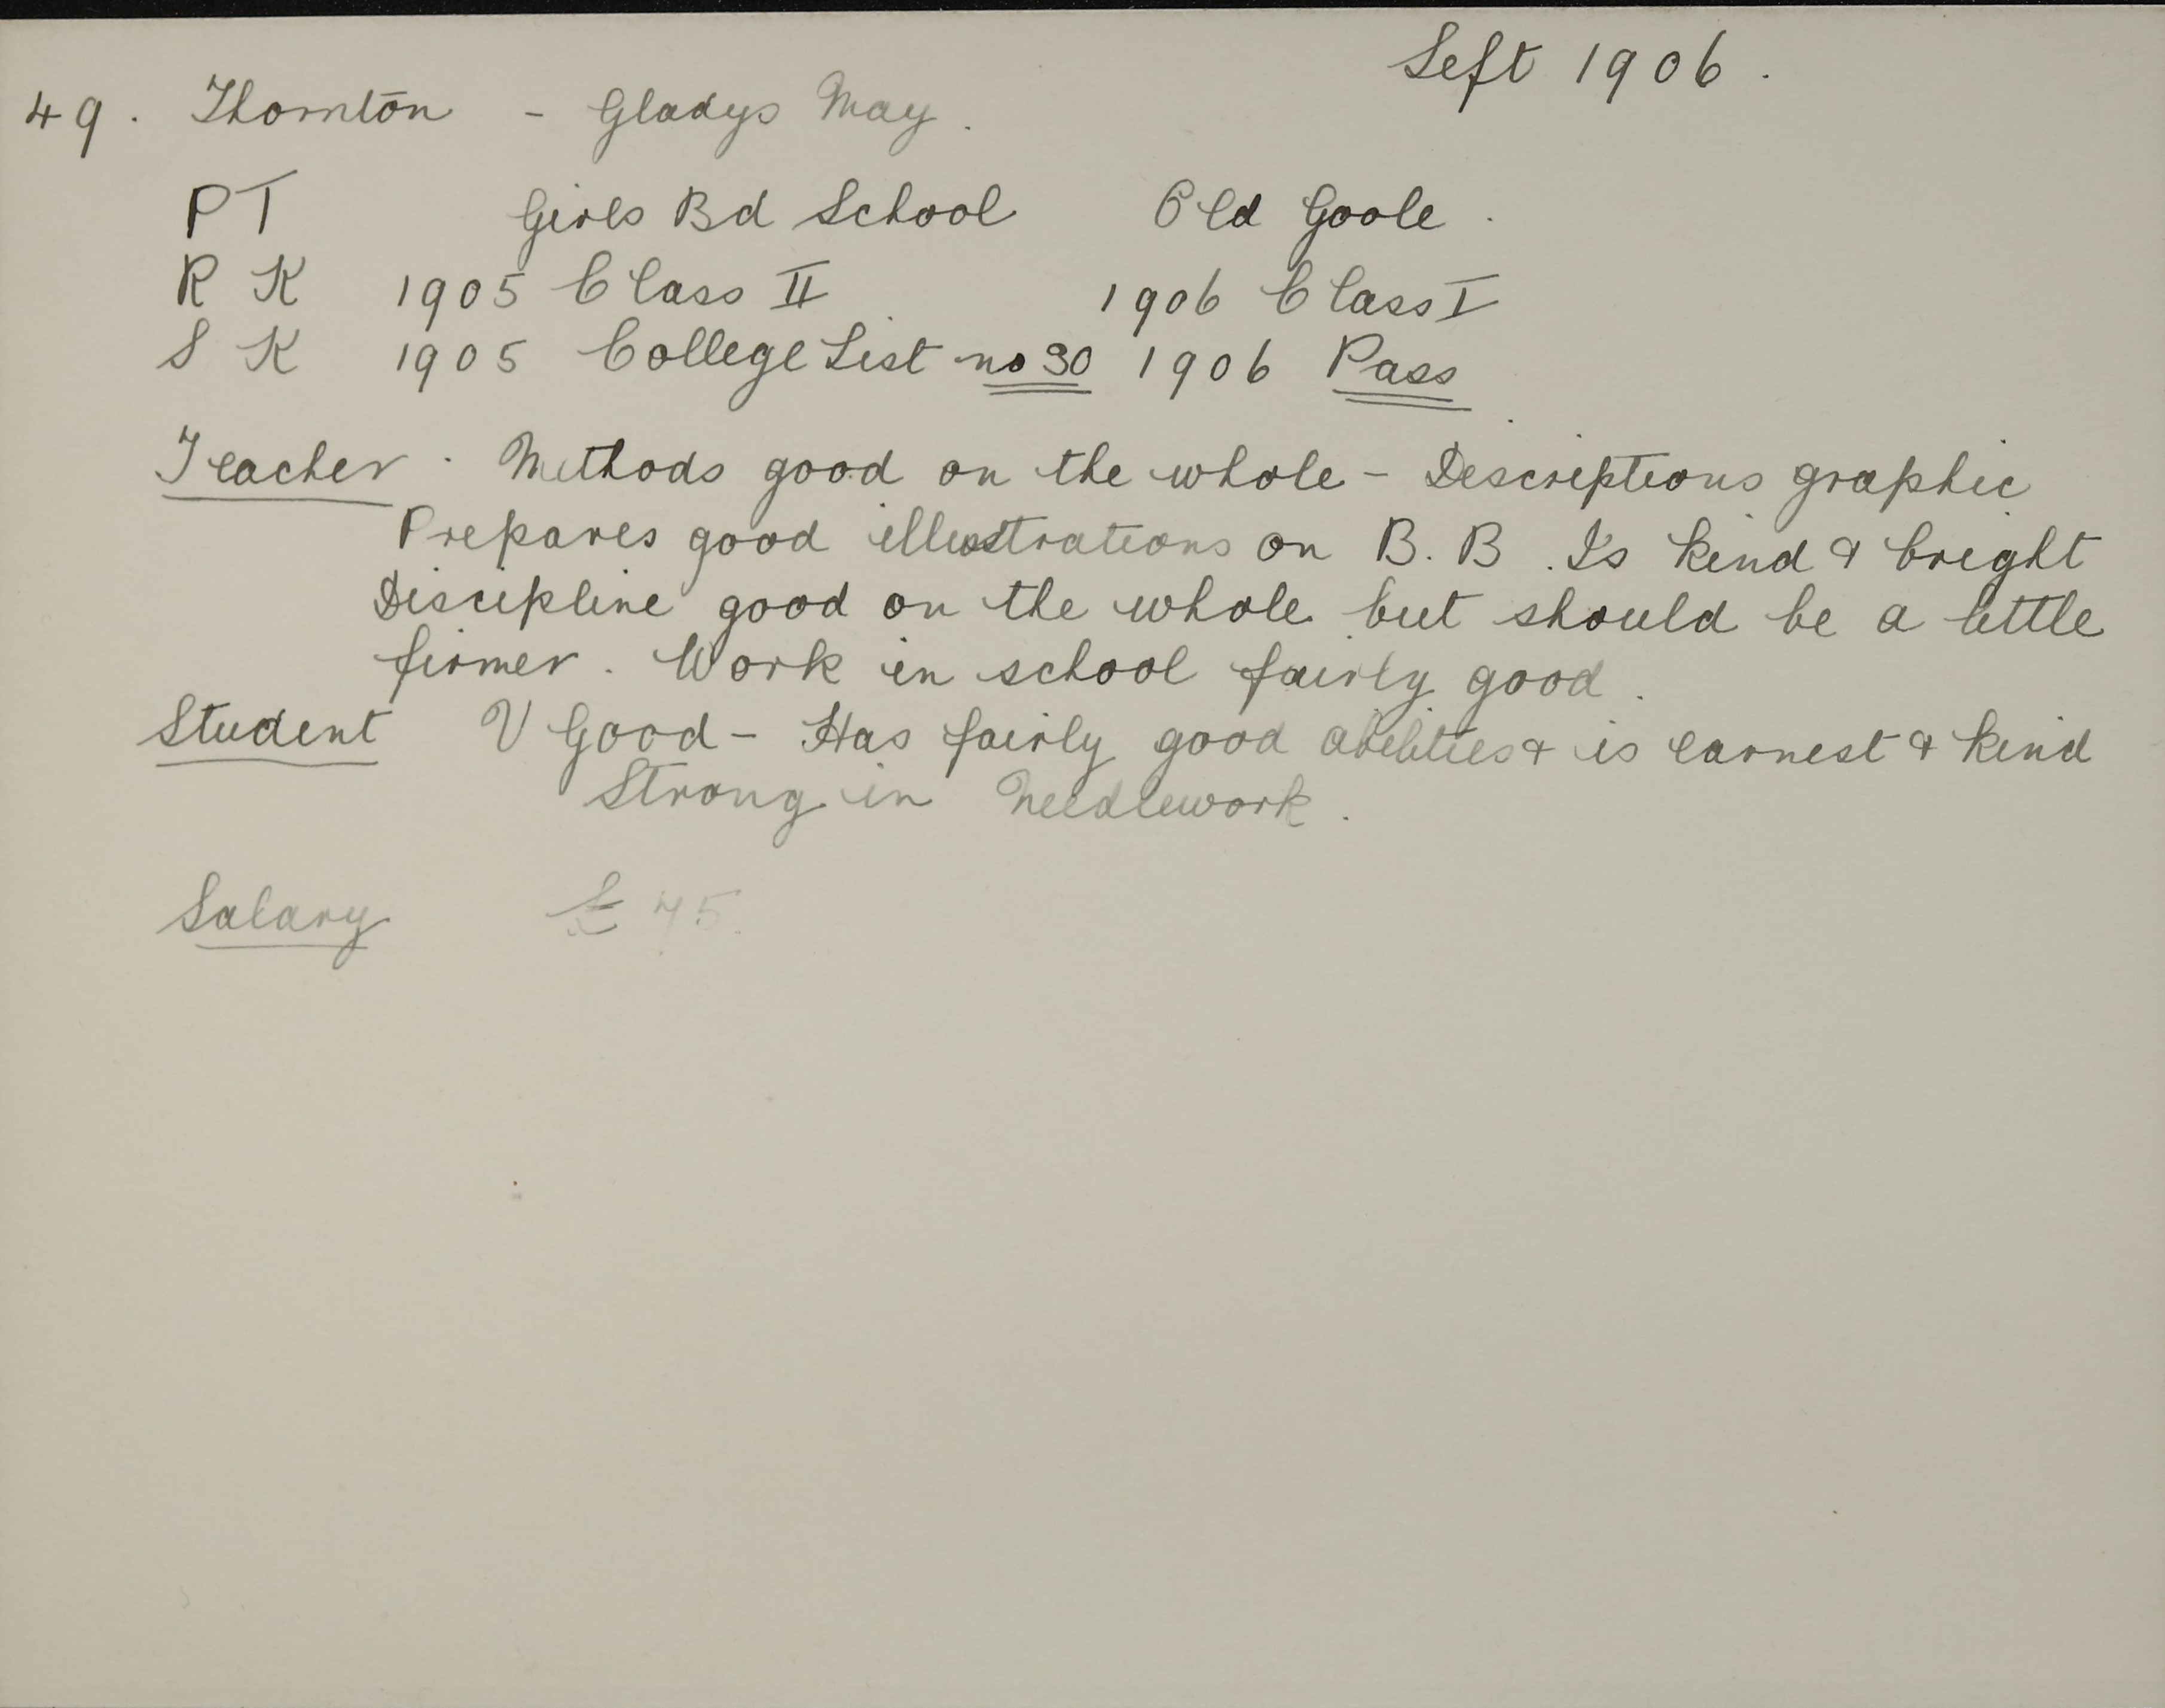 Left 1906.
49. Thornton - Gladys May.
PT Girls Bd School Old Goole.
R K 1905 Class II 1906 Class I
S K 1905 College List no 30 1906 Pass
Teacher. Methods good on the whole - Descriptions graphic
Prepares good illustrations on B. B. Is kind & bright
Discipline good on the whole but should be a little
firmer. Work in school fairly good.
Student V Good - Has fairly good abilities & is earnest & kind
Strong in Needlework.
Salary £75.